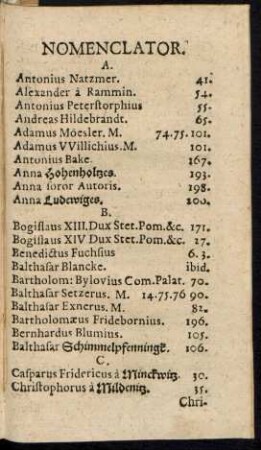 NOMENCLATOR.
A.
Antonius Natzmer. 41.
Alexander à Rammin. 54.
Antonius Peterstorphius 55.
Andreas Hildebrandt. 65.
Adamus Móesler. M. 74.75. 101.
Adamus VVillichius. M. 101.
Antonius Bake. 167.
Anna Hohenholtzes. 193.
Anna soror Autoris. 198.
Anna Ludewiges. 200.
B.
Bogislaus XIII. Dux Stet. Pom. &c. 171.
Bogislaus XIV Dux Stet. Pom. &c. 17.
Benedictus Fuchsius 6.3.
Balthasar Blancke. ibid.
Bartholom: Bylovius Com. Palat. 70.
Balthasar Setzerus. M. 14.75.76 90.
Balthasar Exnerus. M. 82.
Bartholomæus Fridebornius. 196.
Bernhardus Blumius. 105.
Balthasar Schimmelpfenningk. 106.
C.
Casparus Fridericus à Minckwitz. 30.
Christophorus à Mildenitz. 35.
Chri-